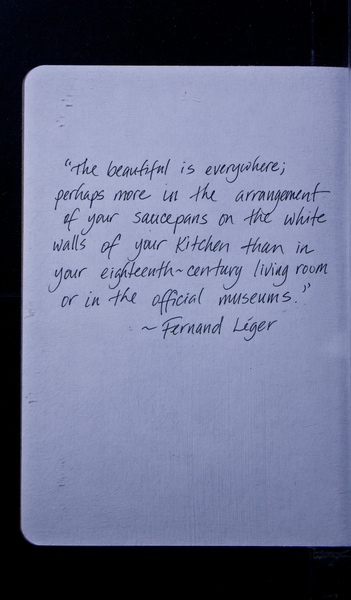 "The beautiful is everywhere;
perhaps more in the arrangement
of your saucepans on the white
walls of your kitchen than in
your eighteenth~century living room
or in the official museums."
~ Fernand Léger